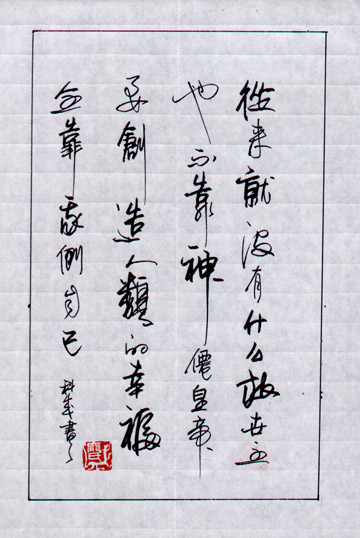 從来就沒有什么救世主
也不靠神僊皇帝
要創造人類的幸福
全靠我們自己